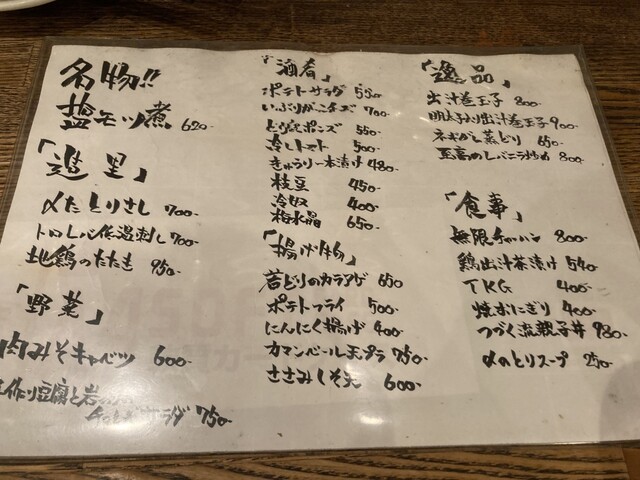 名物!!
塩モツ煮 620-
「造里」
〆たとりさし 700-
トロレバ低温刺し 700-
地鶏のたたき 950-
「野菜」
肉みそキャベツ 600-
作り豆腐と岩の
サラダ 750-
「酒肴」
ポテトサラダ 550-
いぶりがっこチーズ 700-
とり皮ポンズ 550-
冷しトマト 500-
きゅうり一本漬け 480-
枝豆 450-
冷奴 400-
梅水晶 650-
「揚げ物」
若どりのカラアゲ 650
ポテトフライ 500-
にんにく揚げ 400-
カマンベール天プラ 750-
ささみしそ天 600-
「逸品」
出汁巻玉子 800-
明太子入り出汁巻玉子 900-
ネギがし蒸どり 650-
豆苗のレバニラ炒め 800-
「食事」
無限チャーハン 800-
鶏出汁茶漬け 540-
TKG 400-
焼おにぎり 400-
つづく流親子丼 980-
〆のとりスープ 250-